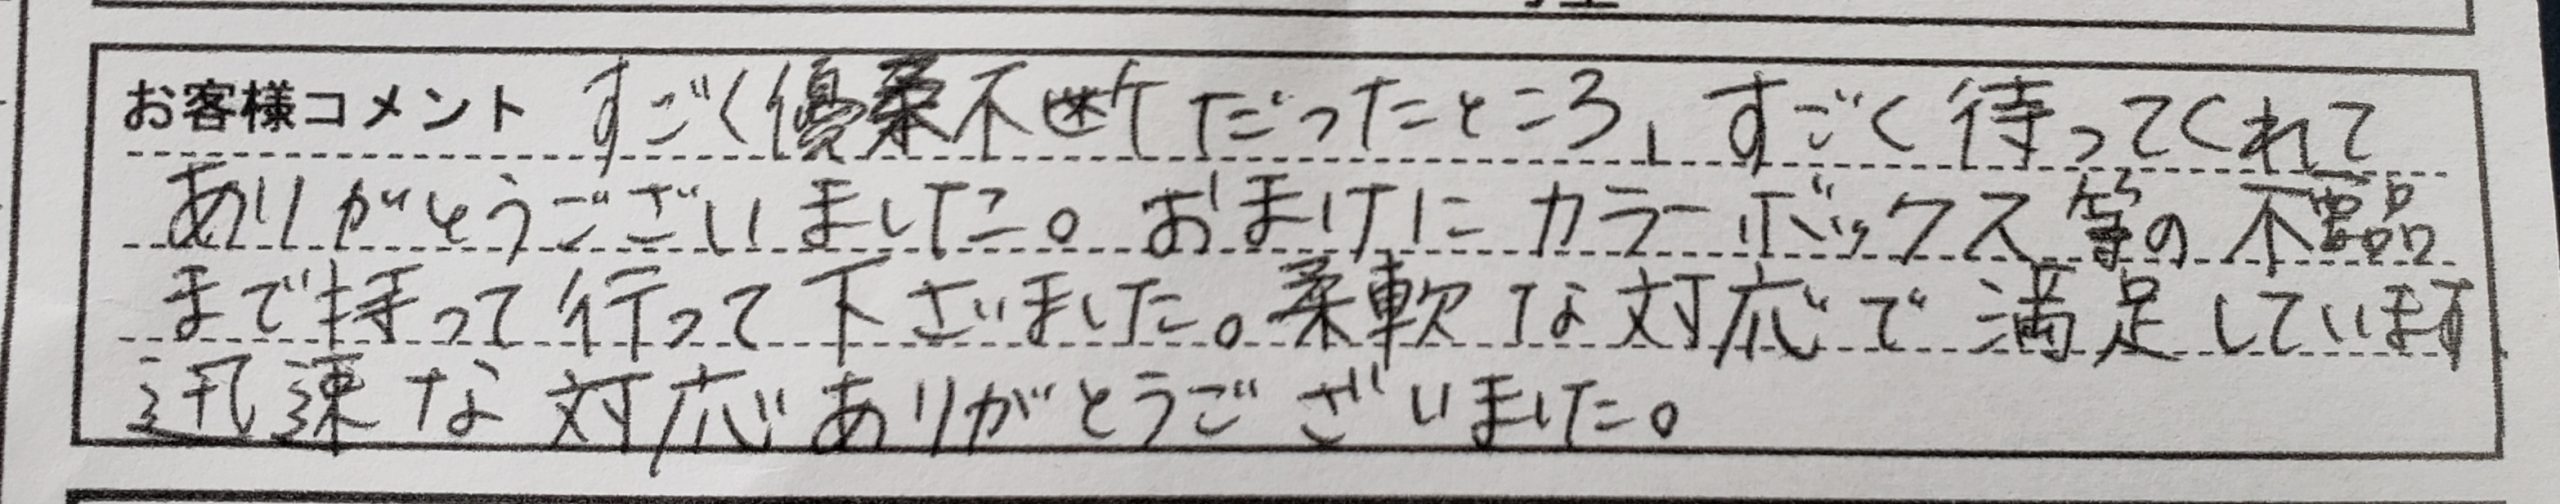 お客様コメント すごく優柔不断だったところ、すごく待ってくれて
ありがとうございました。おまけにカラーボックス等の不用品
まで持って行って下さいました。柔軟な対応で満足しています
迅速な対応ありがとうございました。